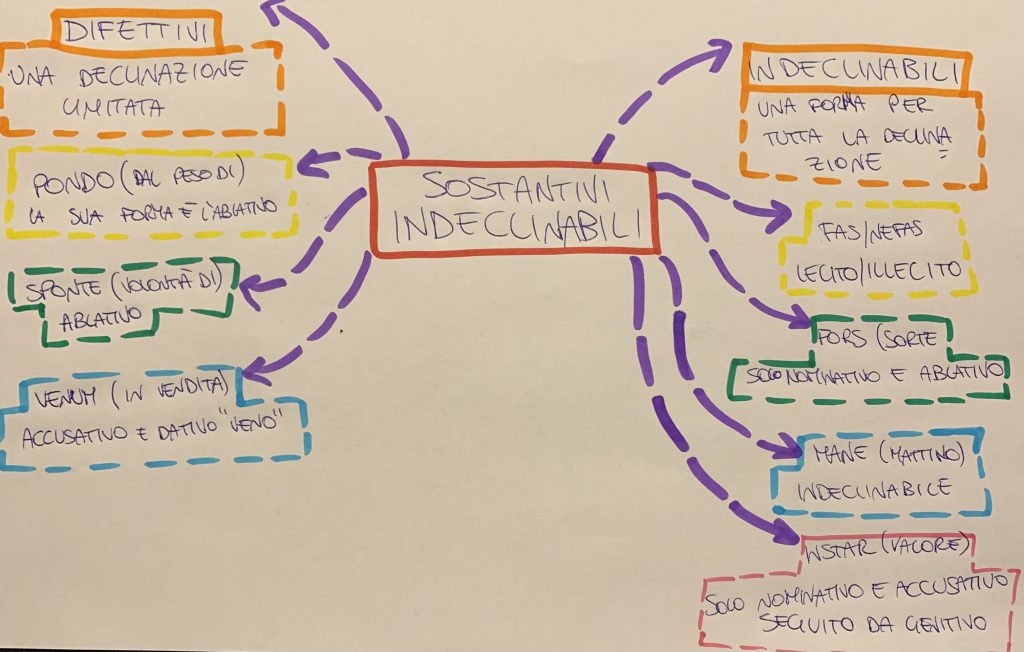 SOSTANTIVI
INDECLINABILI
DIFETTIVI
UNA DECLINAZIONE
LIMITATA
PONDO (DAL PESO DI)
LA SUA FORMA È L'ABLATIVO
SPONTE (VOLONTÀ DI)
ABLATIVO
VENUM (IN VENDITA)
ACCUSATIVO E DATIVO "VENO"
INDECLINABILI
UNA FORMA PER
TUTTA LA DECLINA
ZIONE
FAS/NEFAS
LECITO/ILLECITO
FORS (SORTE
SOLO NOMINATIVO E ABLATIVO
MANE (MATTINO)
INDECLINABILE
INSTAR (VALORE)
SOLO NOMINATIVO E ACCUSATIVO
SEGUITO DA GENITIVO